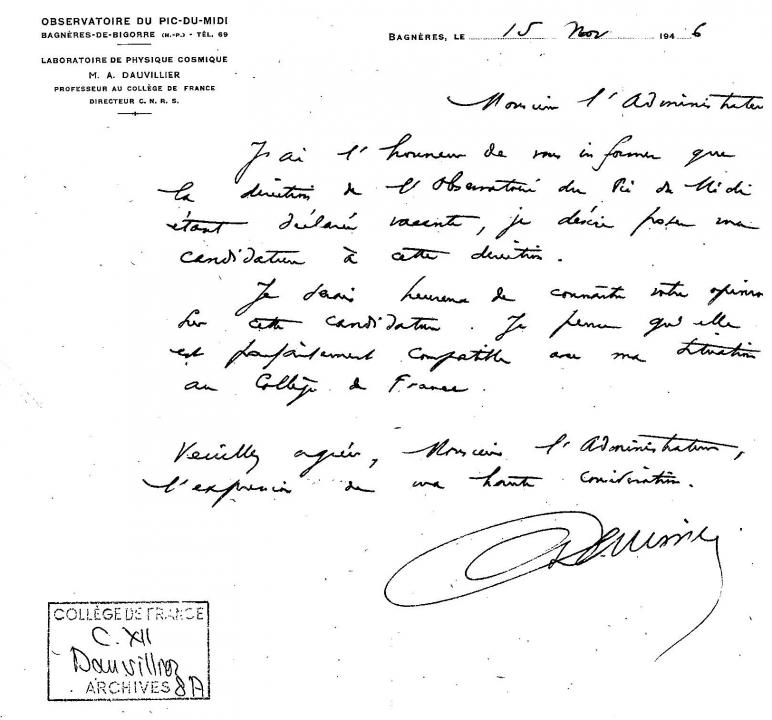 OBSERVATOIRE DU PIC-DU-MIDI
BAGNÈRES-DE-BIGORRE (H.-P.) - TÉL. 69
LABORATOIRE DE PHYSIQUE COSMIQUE
M. A. DAUVILLIER
PROFESSEUR AU COLLÈGE DE FRANCE
DIRECTEUR C. N. R. S.
BAGNÈRES, LE 15 Nov 1946
Monsieur l'Administrateur
J'ai l'honneur de vous informer que
la direction de l'Observatoire du Pic du Midi
étant déclarée vacante, je désire poser ma
candidature à cette direction.
Je serais heureux de connaître votre opinion
sur cette candidature. Je pense qu'elle
est parfaitement compatible avec ma situation
au Collège de France.
Veuillez agréer, Monsieur l'Administrateur,
l'expression de ma haute considération.
Dauvillier
COLLÈGE DE FRANCE
C. XII
Dauvillier
ARCHIVES 8A